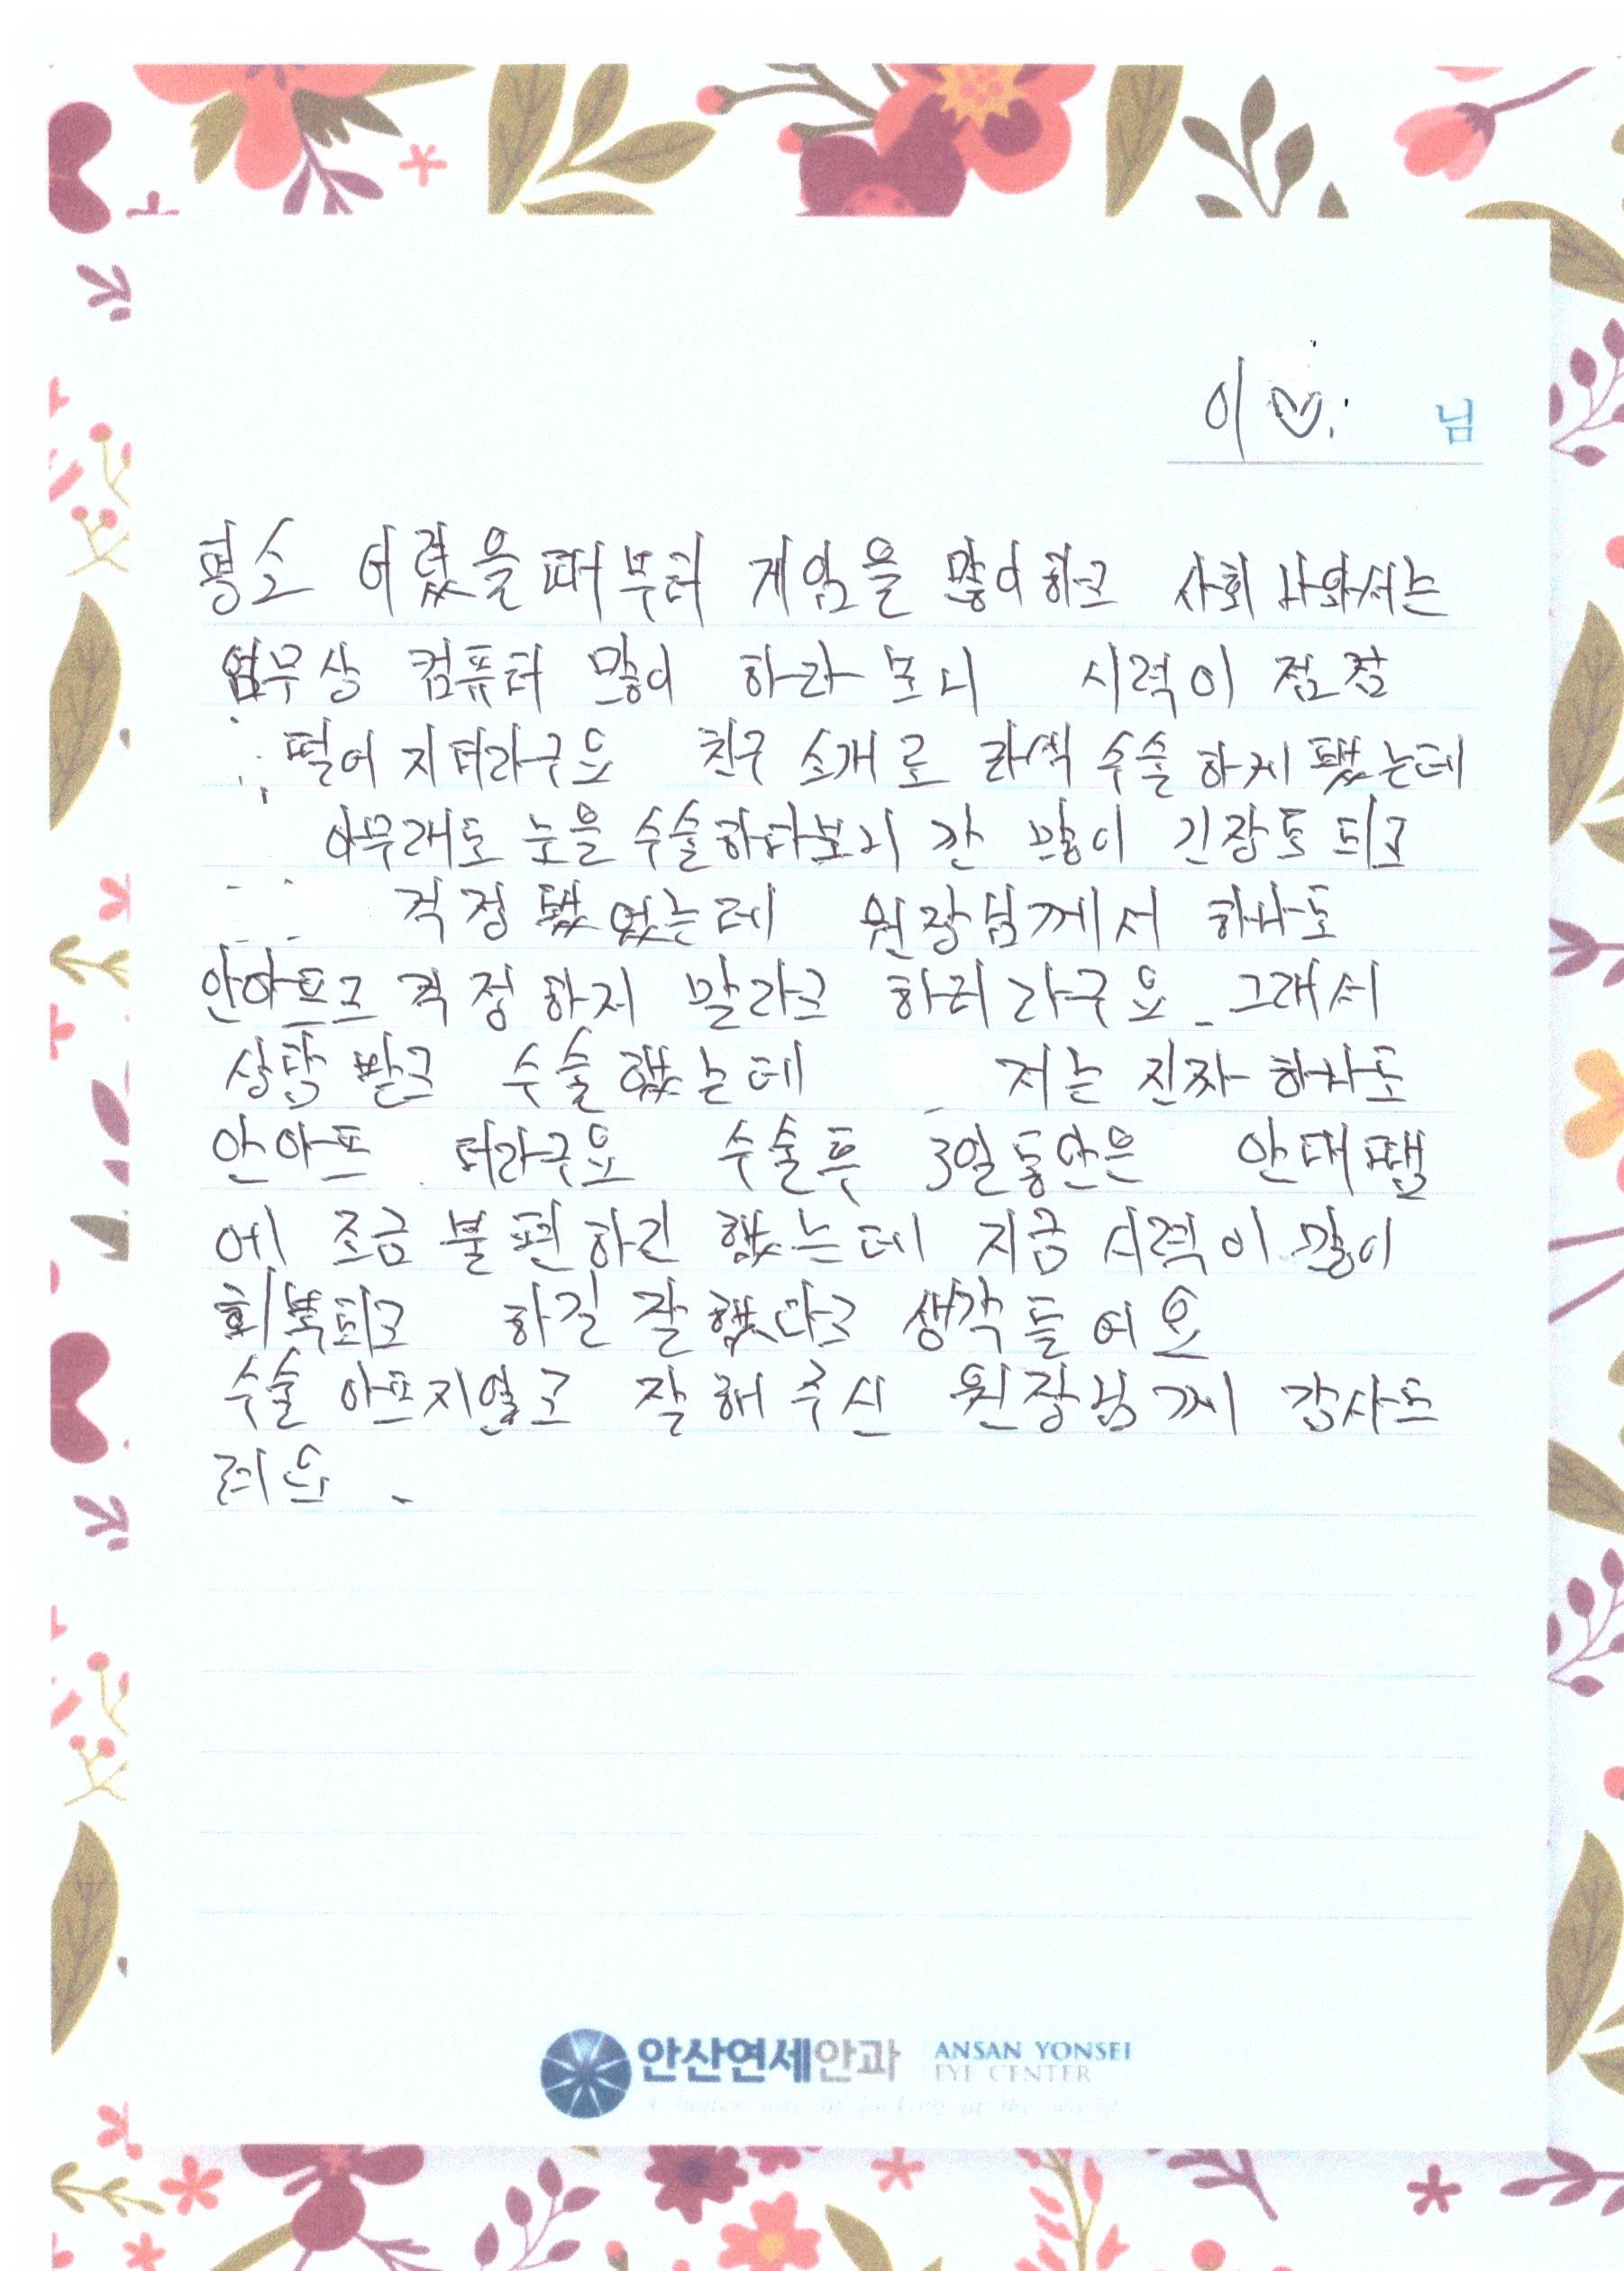 이♡ 님
평소 어렸을때부터 게임을 많이하고 사회 나와서는
업무상 컴퓨터 많이 하라 보니 시력이 점점
떨어 지더라구요 친구 소개로 라섹 수술 하게 됐는데
아무래도 눈을 수술하다보니 깐 많이 긴장도 되고
걱정 됐었는데 원장님께서 하나도
안아프고 걱정 하지 말라고 하러라구요. 그래서
상담 받고 수술 했는데 저는 진짜 하나도
안아프 더라구요 수술후 3일동안은 안대땜
에 조금 불편하긴 했는데 지금 시력이 많이
회복되고 하길 잘했다고 생각 들어요
수술 아프지않고 잘해 주신 원장님께 감사드
려요.
안산연세안과 ANSAN YONSEI
EYE CENTER